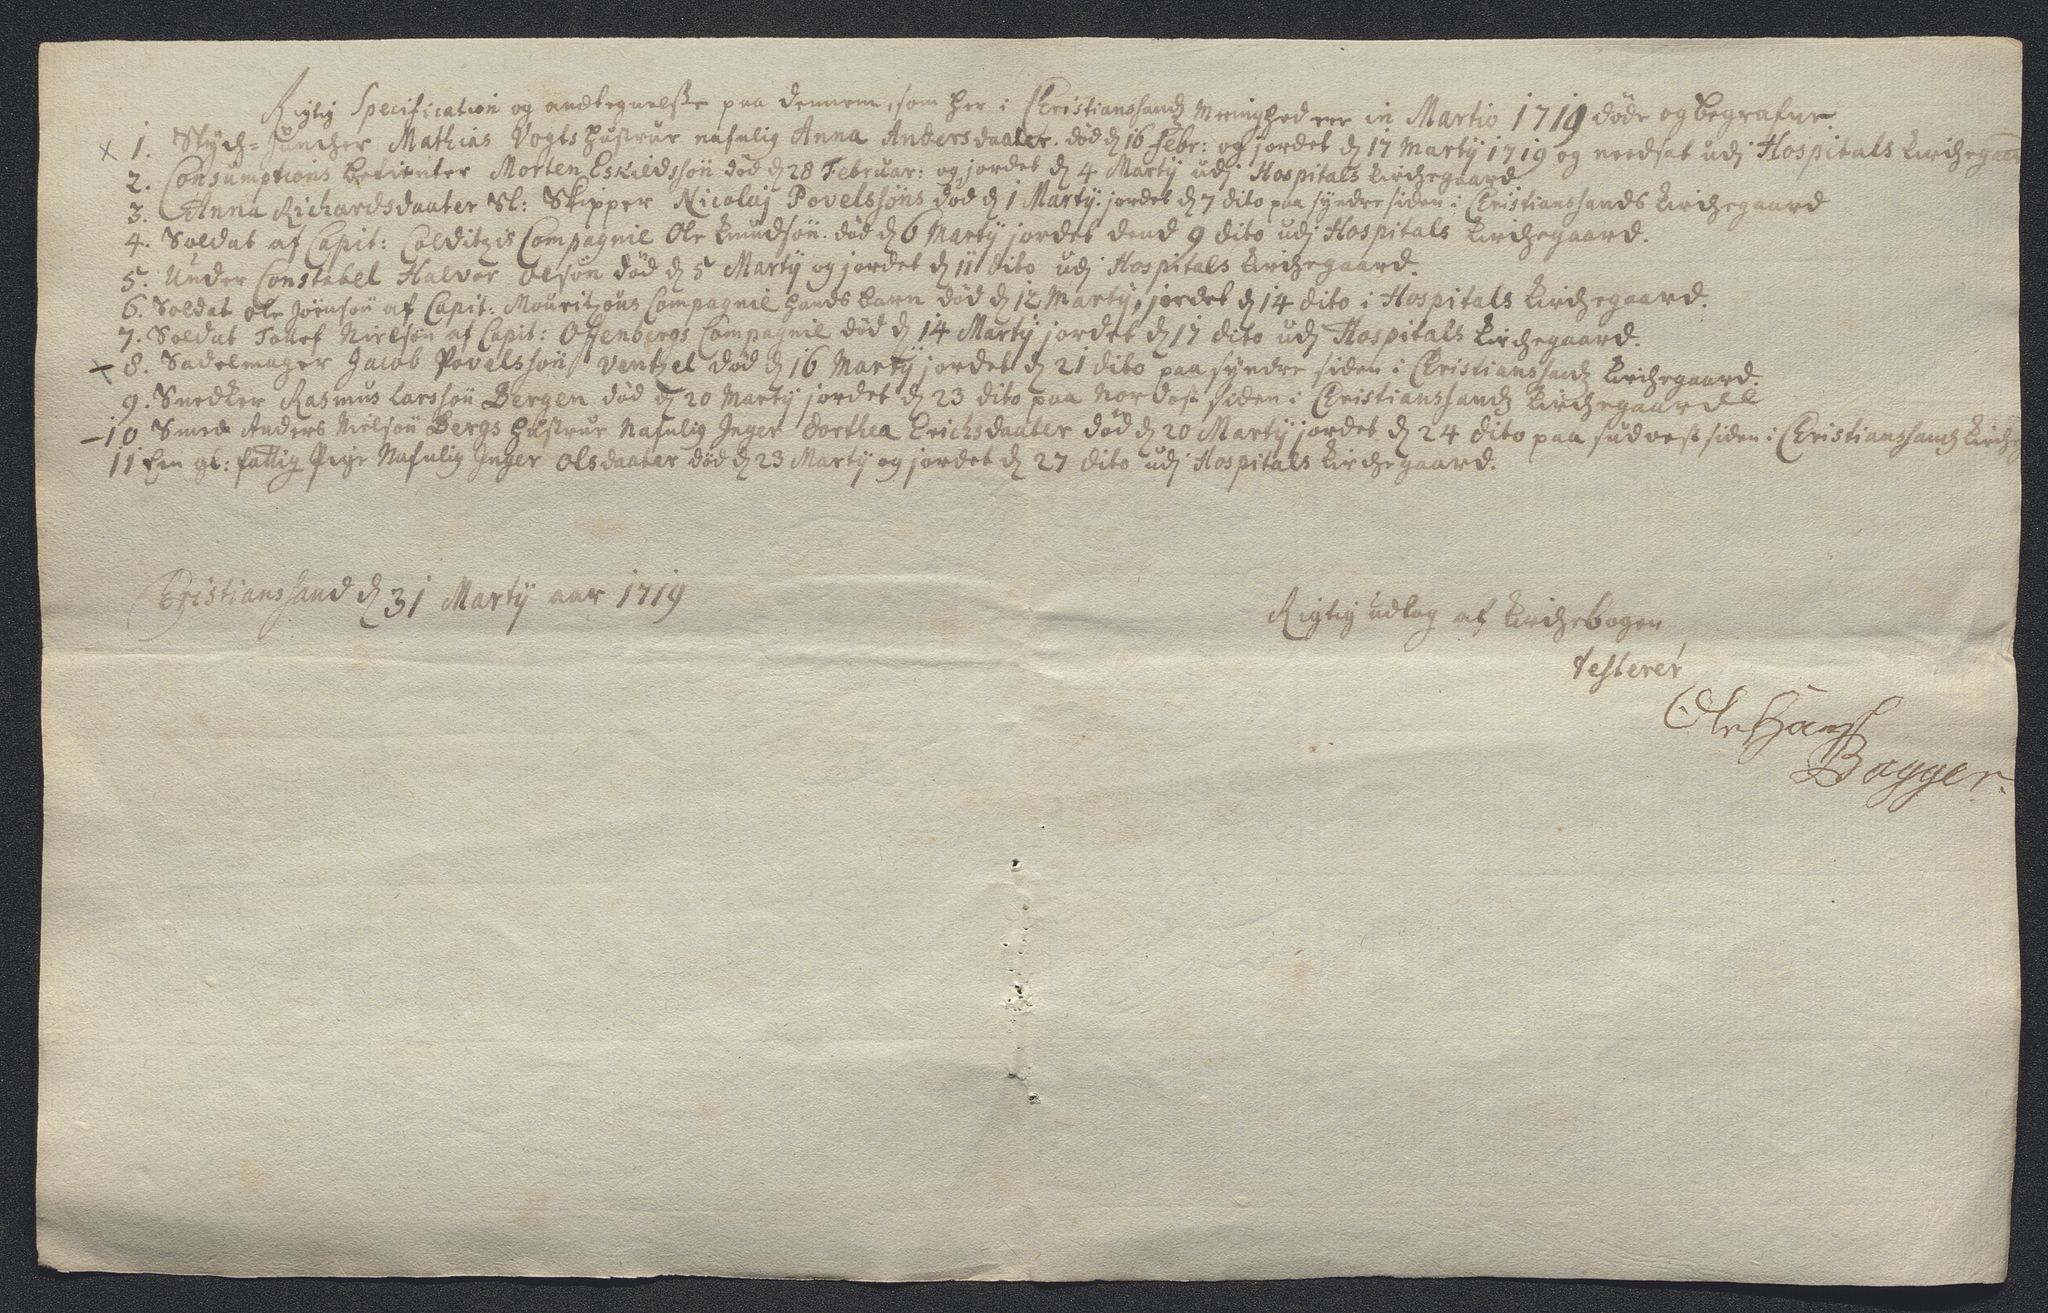 Rigtig Specification og andtegnelsse paa dennem, som her i Christianssandz Meenighed ere in Martio 1719 døde og begrafne.
x 1. Stÿch-Juncher Mathias Vogts hustrue nafnlig Anna Andersdaater. død d 16 Febr: og jordet d 17 Martÿ 1719 og needsat udj Hospitals Kirchegaard
2. Consumptions betienter Morten Eskildssön død d 28 Februar: og jordet d 4 Martÿ udj Hospitals Kirchegaard
3. Anna Richardsdaater Sl: Skipper Nicolaj Povelssöns død d 1 Martÿ. jordet d 7 dito paa syndre siden i Christianssands Kirchegaard
4. Soldat af Capit: Colditzis Compagnie Ole Knudsön. død d 6 Martÿ jordet dend 9 dito udj Hospitals Kirchegaard.
5. Under Constabel Halvor Olsön død d 5 Martÿ og jordet d 11 dito udj Hospitals Kirchegaard.
6. Soldat Ole Jörnsön af Capit: Mouritzöns Compagnie hands barn død d 12 Martÿ, jordet d 14 dito i Hospitals Kirchegaard.
7. Soldat Nielsön af Capit: Offenbergs Compagnie død d 14 Martÿ jordet d 17 dito udj Hospitals Kirchegaard.
8. Sadelmager Jacob Povelssön Ventzel død d 16 Martÿ jordet d 21 dito paa syndre siden i Christianssandz Kirchegaard.
9. Snedker Rasmus Larssön Bergen død d 20 Martÿ jordet d 23 dito paa Nordost siden i Christianssandz Kirchegaard
– 10 Smed Anders Nielsön Bergs hustrue Nafnlig Inger Dorthea Erichsdaater død d 20 Martÿ jordet d 24 dito paa sudvest siden i Christianssandz Kirche
11 Een gl: fattig Pige Nafnlig Inger Olsdaater død d 23 Martÿ og jordet d 27 dito udj Hospitals Kirchegaard.
Christianssand d 31 Martÿ aar 1719
Rigtig udtog af Kirchebogen
testerer
Ole Hanss
Bagger.